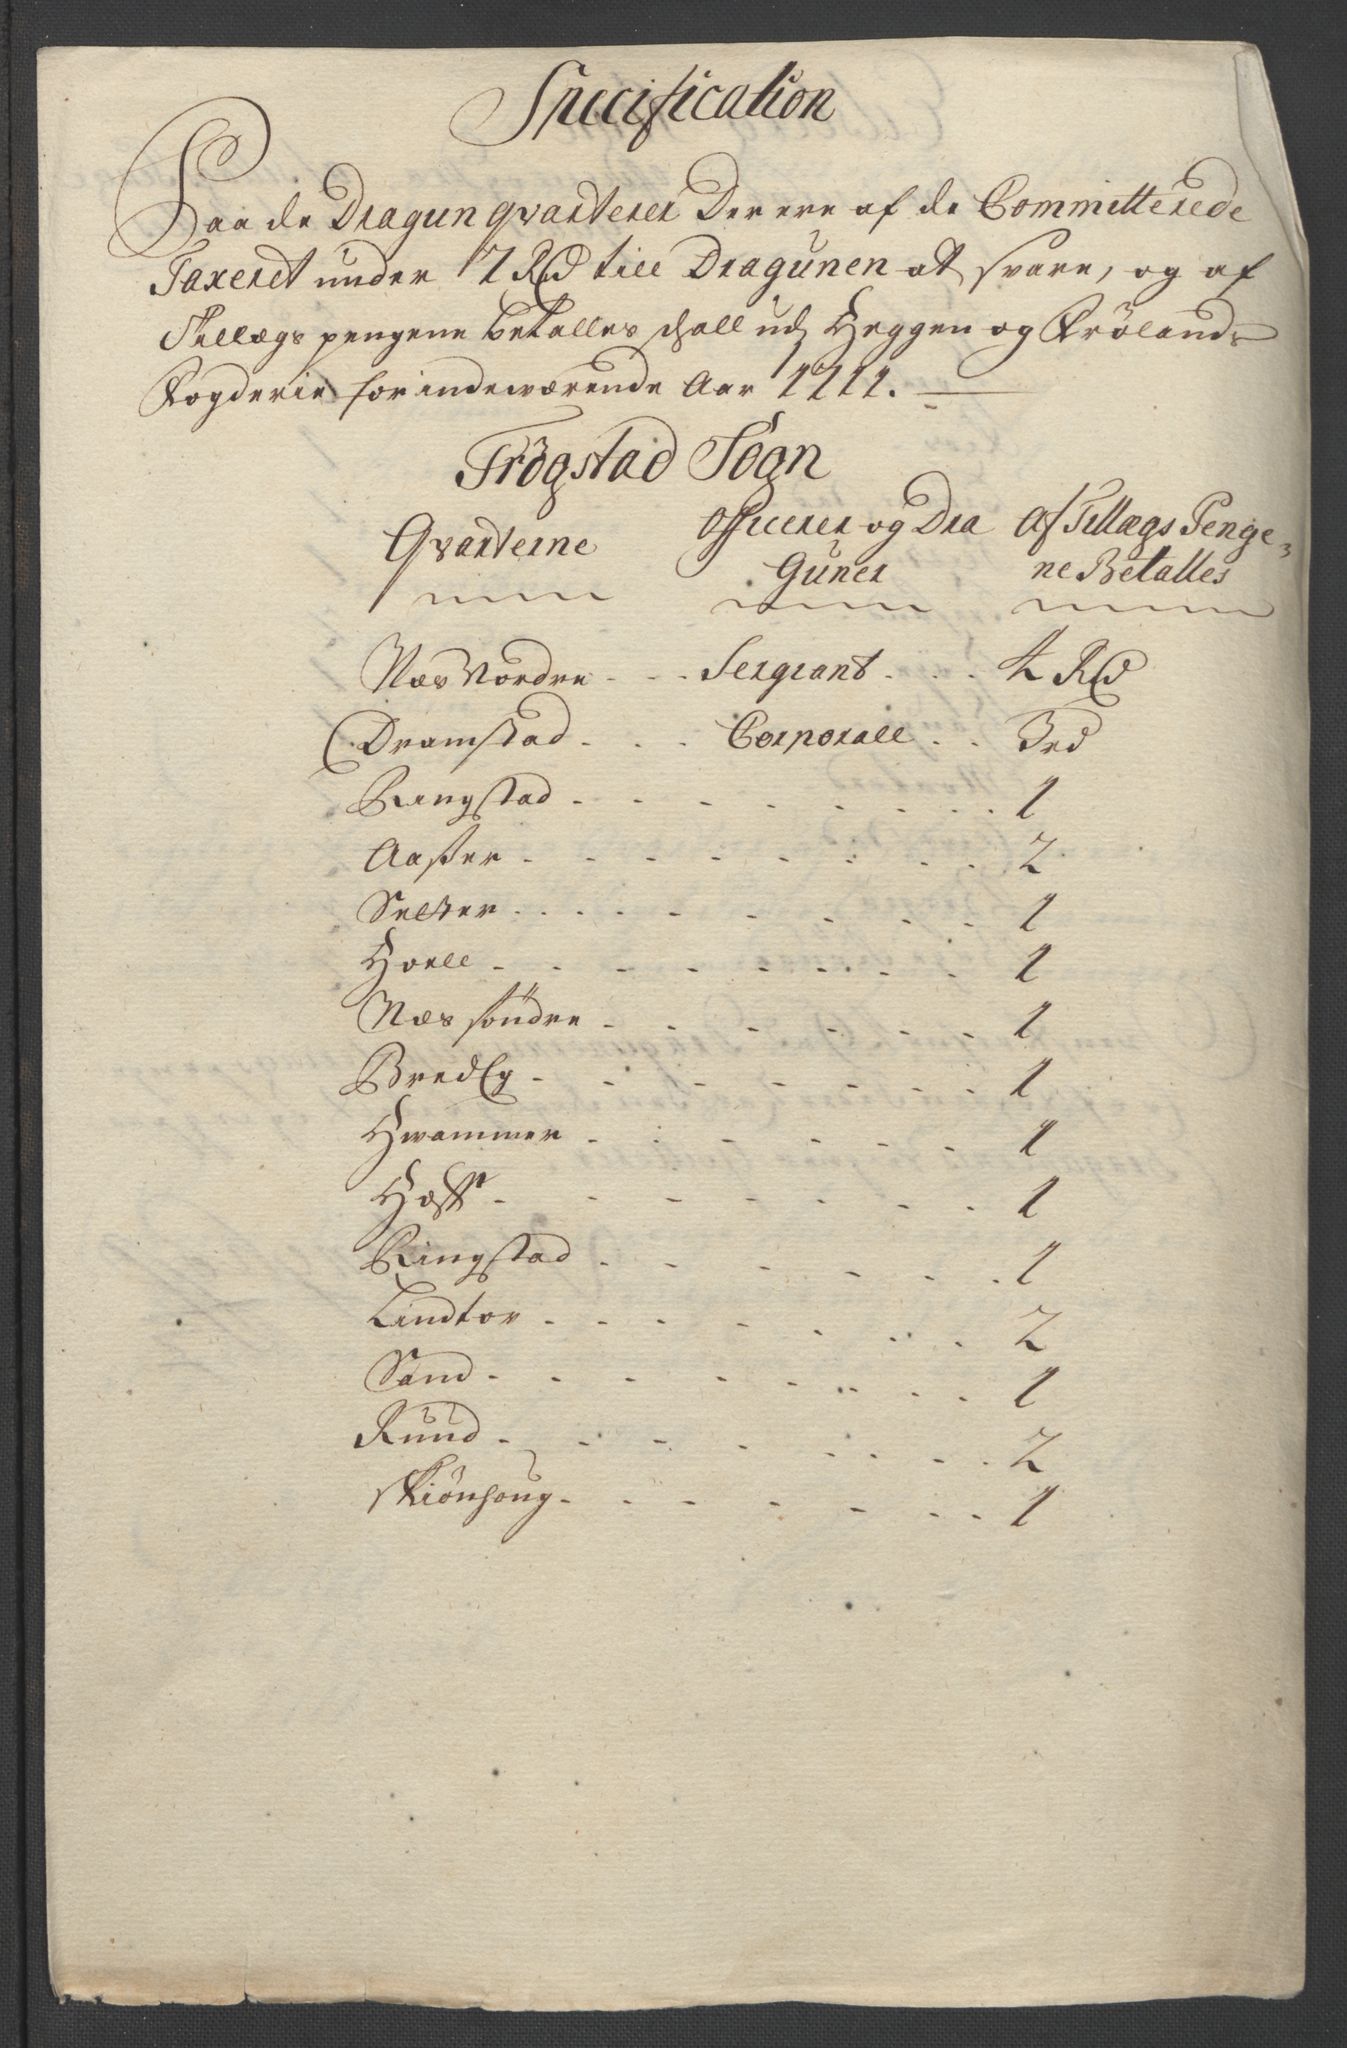 Specification
Paa de Dragun qvarterer Der ere af de Committerede
Taxeret under 7 Rd till Dragunen at svare, og af
Tillægs pengene betalles schall udj Heggen og Frølands
Fogderie for indeværende Aar 1711.
Frögstad Sogn
Qvarterne Officerer og Dra Af Tillægs Penge-
Guner ne Betalles
Næs Nordre - - - Sergiant - - - 4 Rd
Dramstad - - - Corporall - - 3 rd
Ringstad - - - 1
Aaster - - - 2
Selker - - - 1
Hoell - - - 1
Næs söndre - - - 1
Bred Eg - - - 1
Hwammer - - - 1
- - - 1
Ringstad - - - 1
Lindtor - - - 2
Sand - - - 1
Ruud - - - 2
Skiönhoug - - - 1